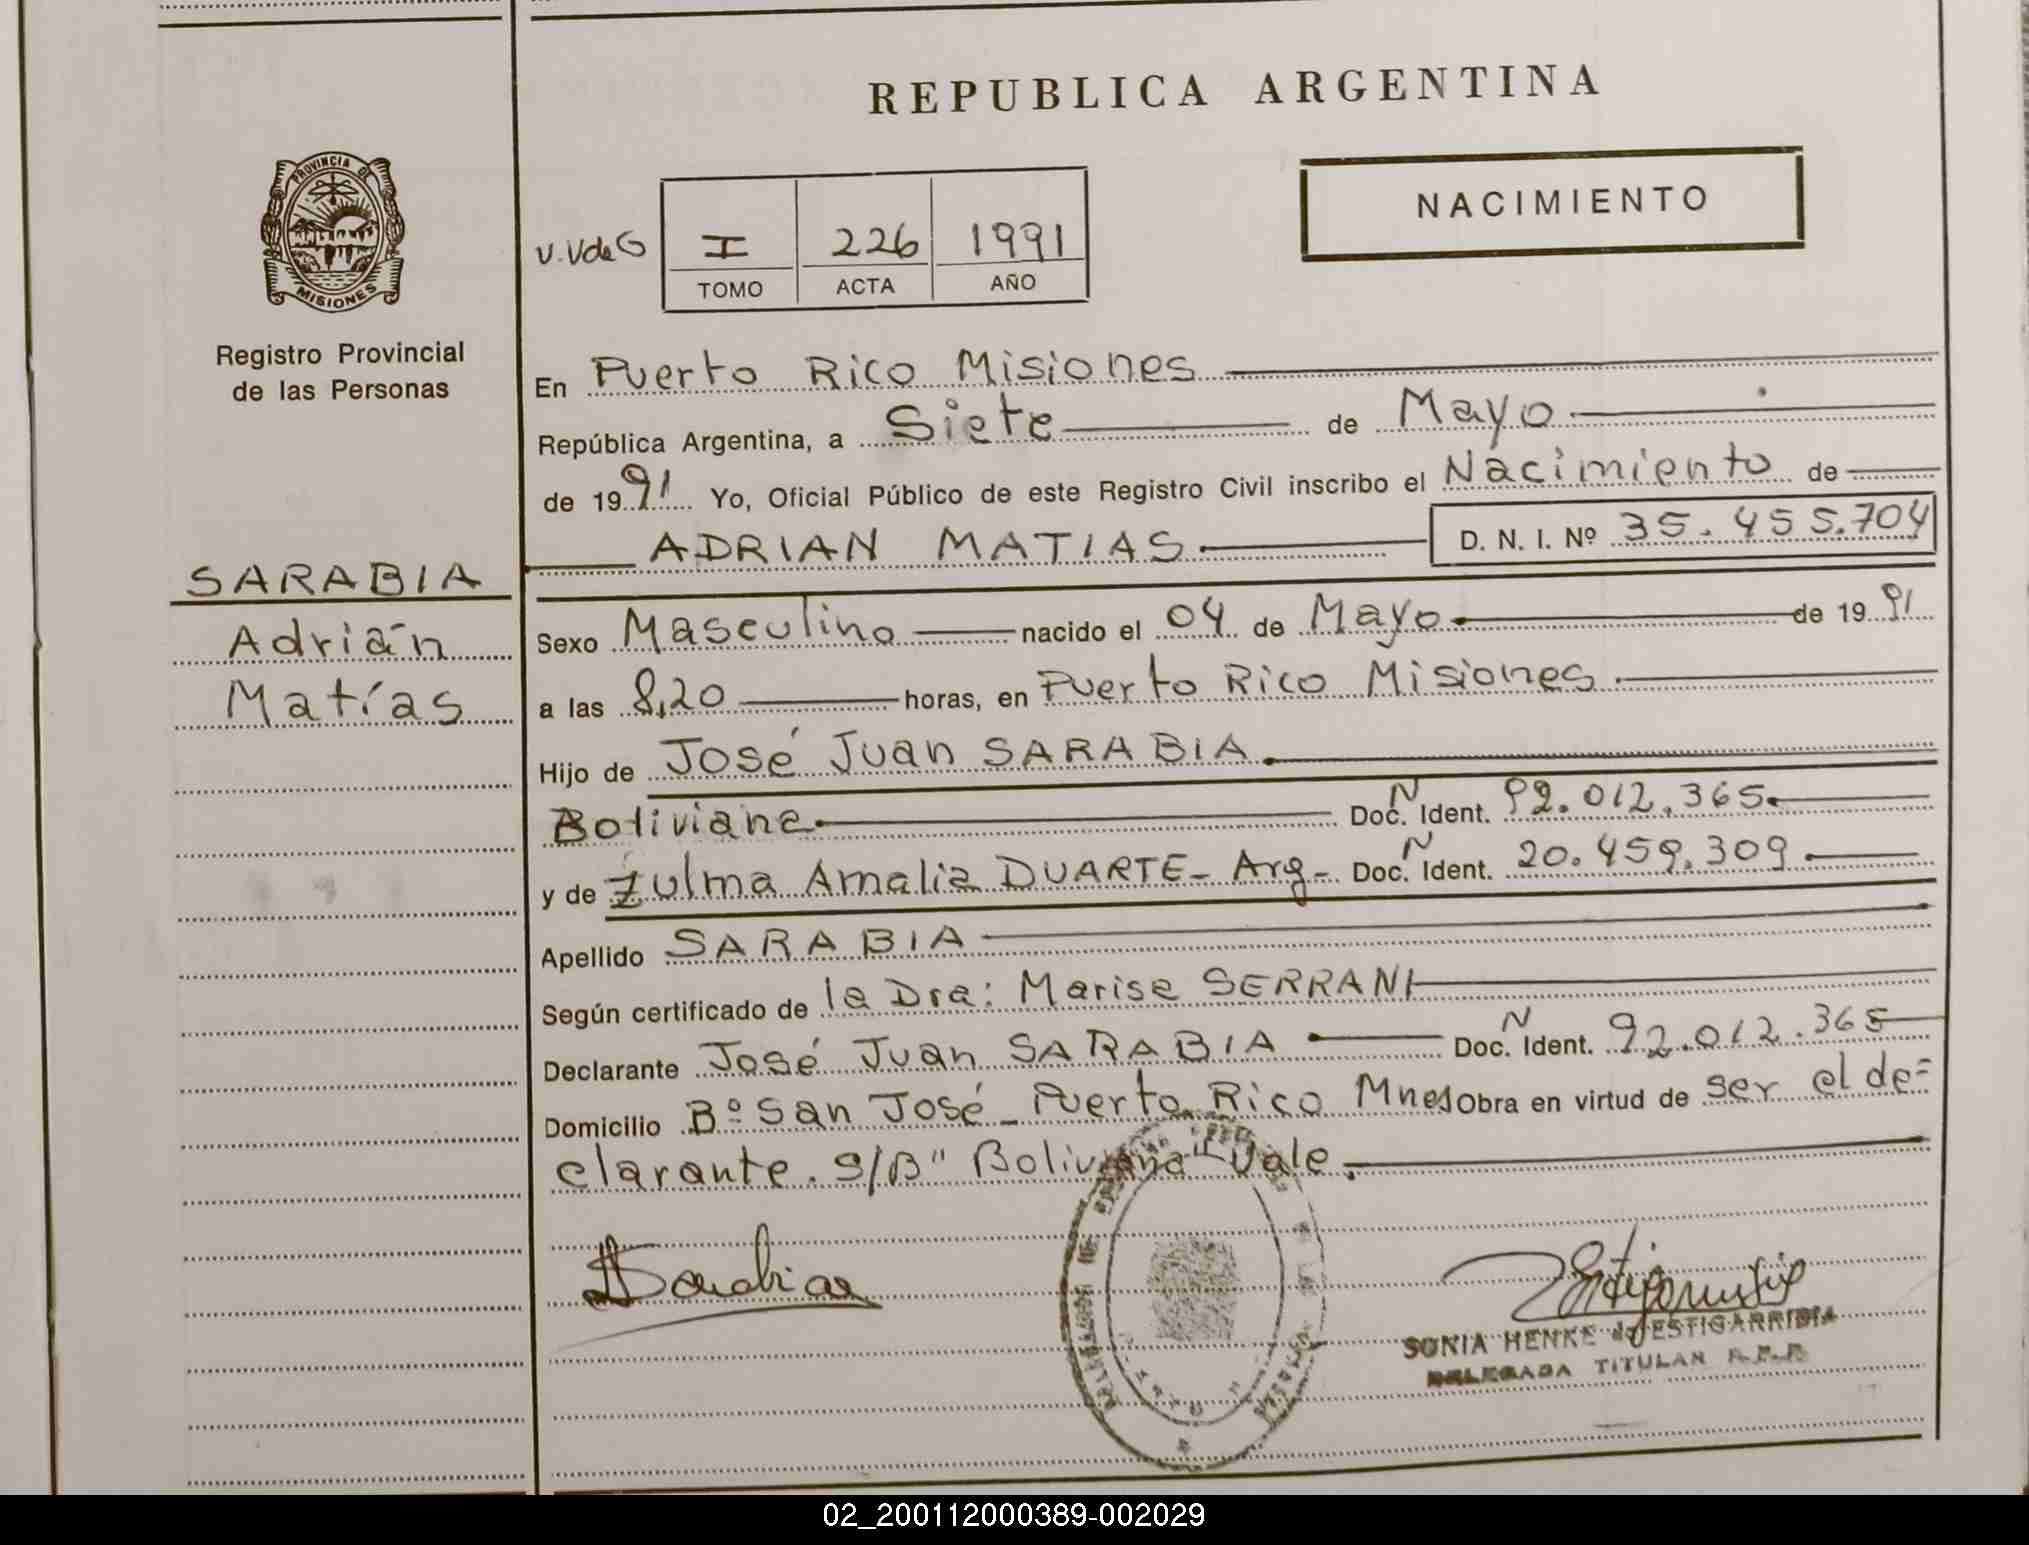 REPUBLICA ARGENTINA
PROVINCIA DE
MISIONES
Registro Provincial
de las Personas
NACIMIENTO
V.VdeG I 226 1991
TOMO ACTA AÑO
En Puerto Rico Misiones
República Argentina, a Siete de Mayo
de 1991 Yo, Oficial Público de este Registro Civil inscribo el Nacimiento de
ADRIAN MATIAS D. N. I. Nº 35.455.704
SARABIA
Adrián
Matías
Sexo Masculino nacido el 04 de Mayo de 1991
a las 8,20 horas, en Puerto Rico Misiones
Hijo de José Juan SARABIA
Boliviana Doc. Ident. N 92.012.365
y de Zulma Amalia DUARTE - Arg - Doc. Ident. N 20.459.309
Apellido SARABIA
Según certificado de la Dra: Marisa SERRANI
Declarante José Juan SARABIA Doc. Ident. N 92.012.365
Domicilio Bº San José - Puerto Rico Mnes Obra en virtud de ser el de=
clarante. S/B" Boliviana" Vale.
Sarabia
SONIA HENKE de ESTIGARRIBIA
DELEGADA TITULAR R.P.P.
02_200112000389-002029